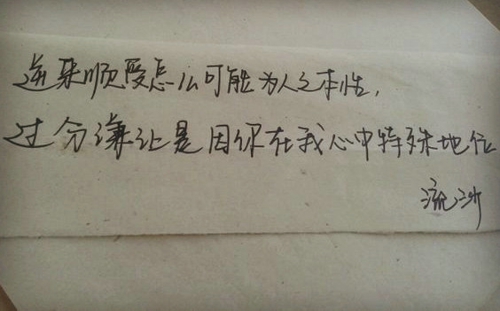 逆来顺受怎么可能为人之本性，
过分谦让是因你在我心中特殊地位
流沙